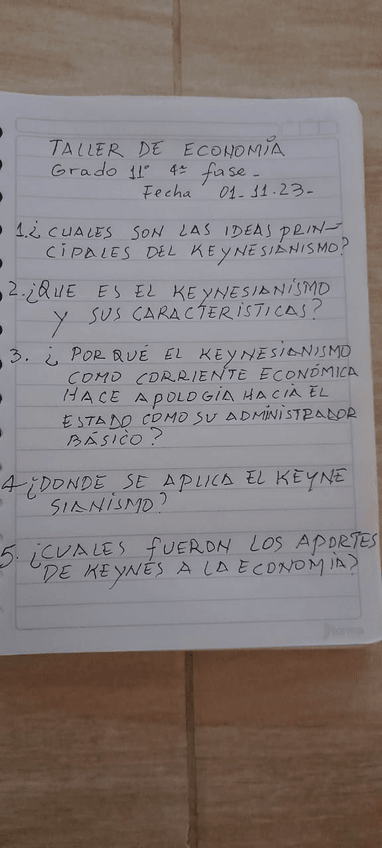 TALLER DE ECONOMÍA
Grado 11° 4ª fase -
Fecha 01-11-23-
1.¿CUALES SON LAS IDEAS PRIN-
CIPALES DEL KEYNESIANISMO?
2.¿QUE ES EL KEYNESIANISMO
Y SUS CARACTERISTICAS?
3. ¿POR QUÉ EL KEYNESIANISMO
COMO CORRIENTE ECONÓMICA
HACE APOLOGÍA HACIA EL
ESTADO COMO SU ADMINISTRADOR
BÁSICO?
4-¿DONDE SE APLICA EL KEYNE
SIANISMO?
5. ¿CUALES FUERON LOS APORTES
DE KEYNES A LA ECONOMIA?